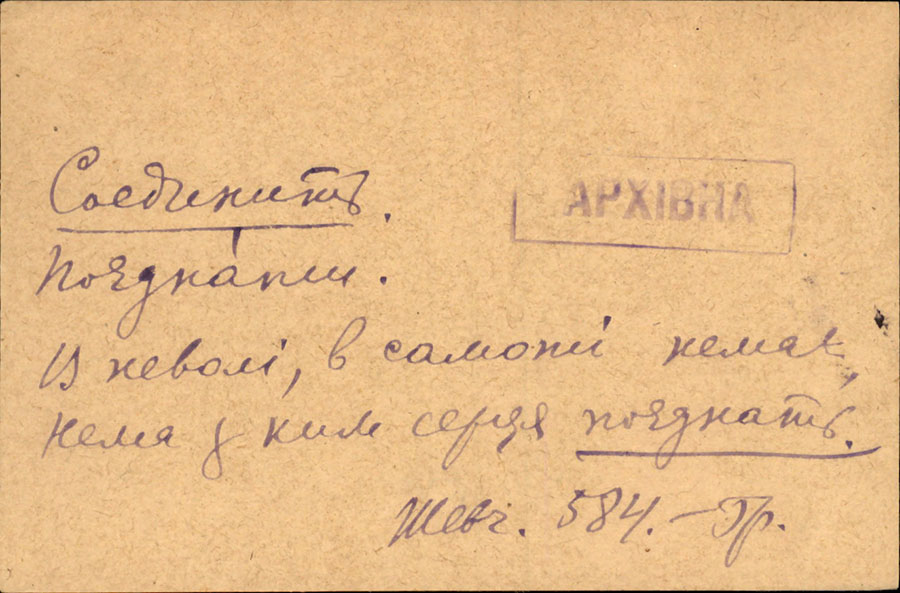 Соединить.
АРХІВНА
Поєдна́ти.
В неволі, в самоті немає,
Нема з ким серця поєднать.
Шевч. 584. – Гр.